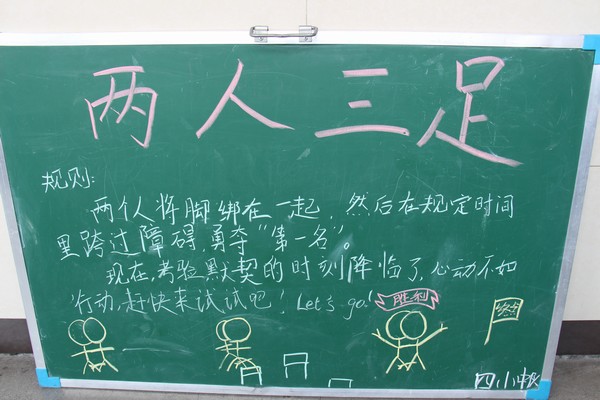 两人三足
规则:
两个人将脚绑在一起,然后在规定时间
里跨过障碍勇夺“第一名”。
现在,考验默契的时刻降临了,心动不如
行动,赶快来试试吧! Let's go!
胜利
终点
四小